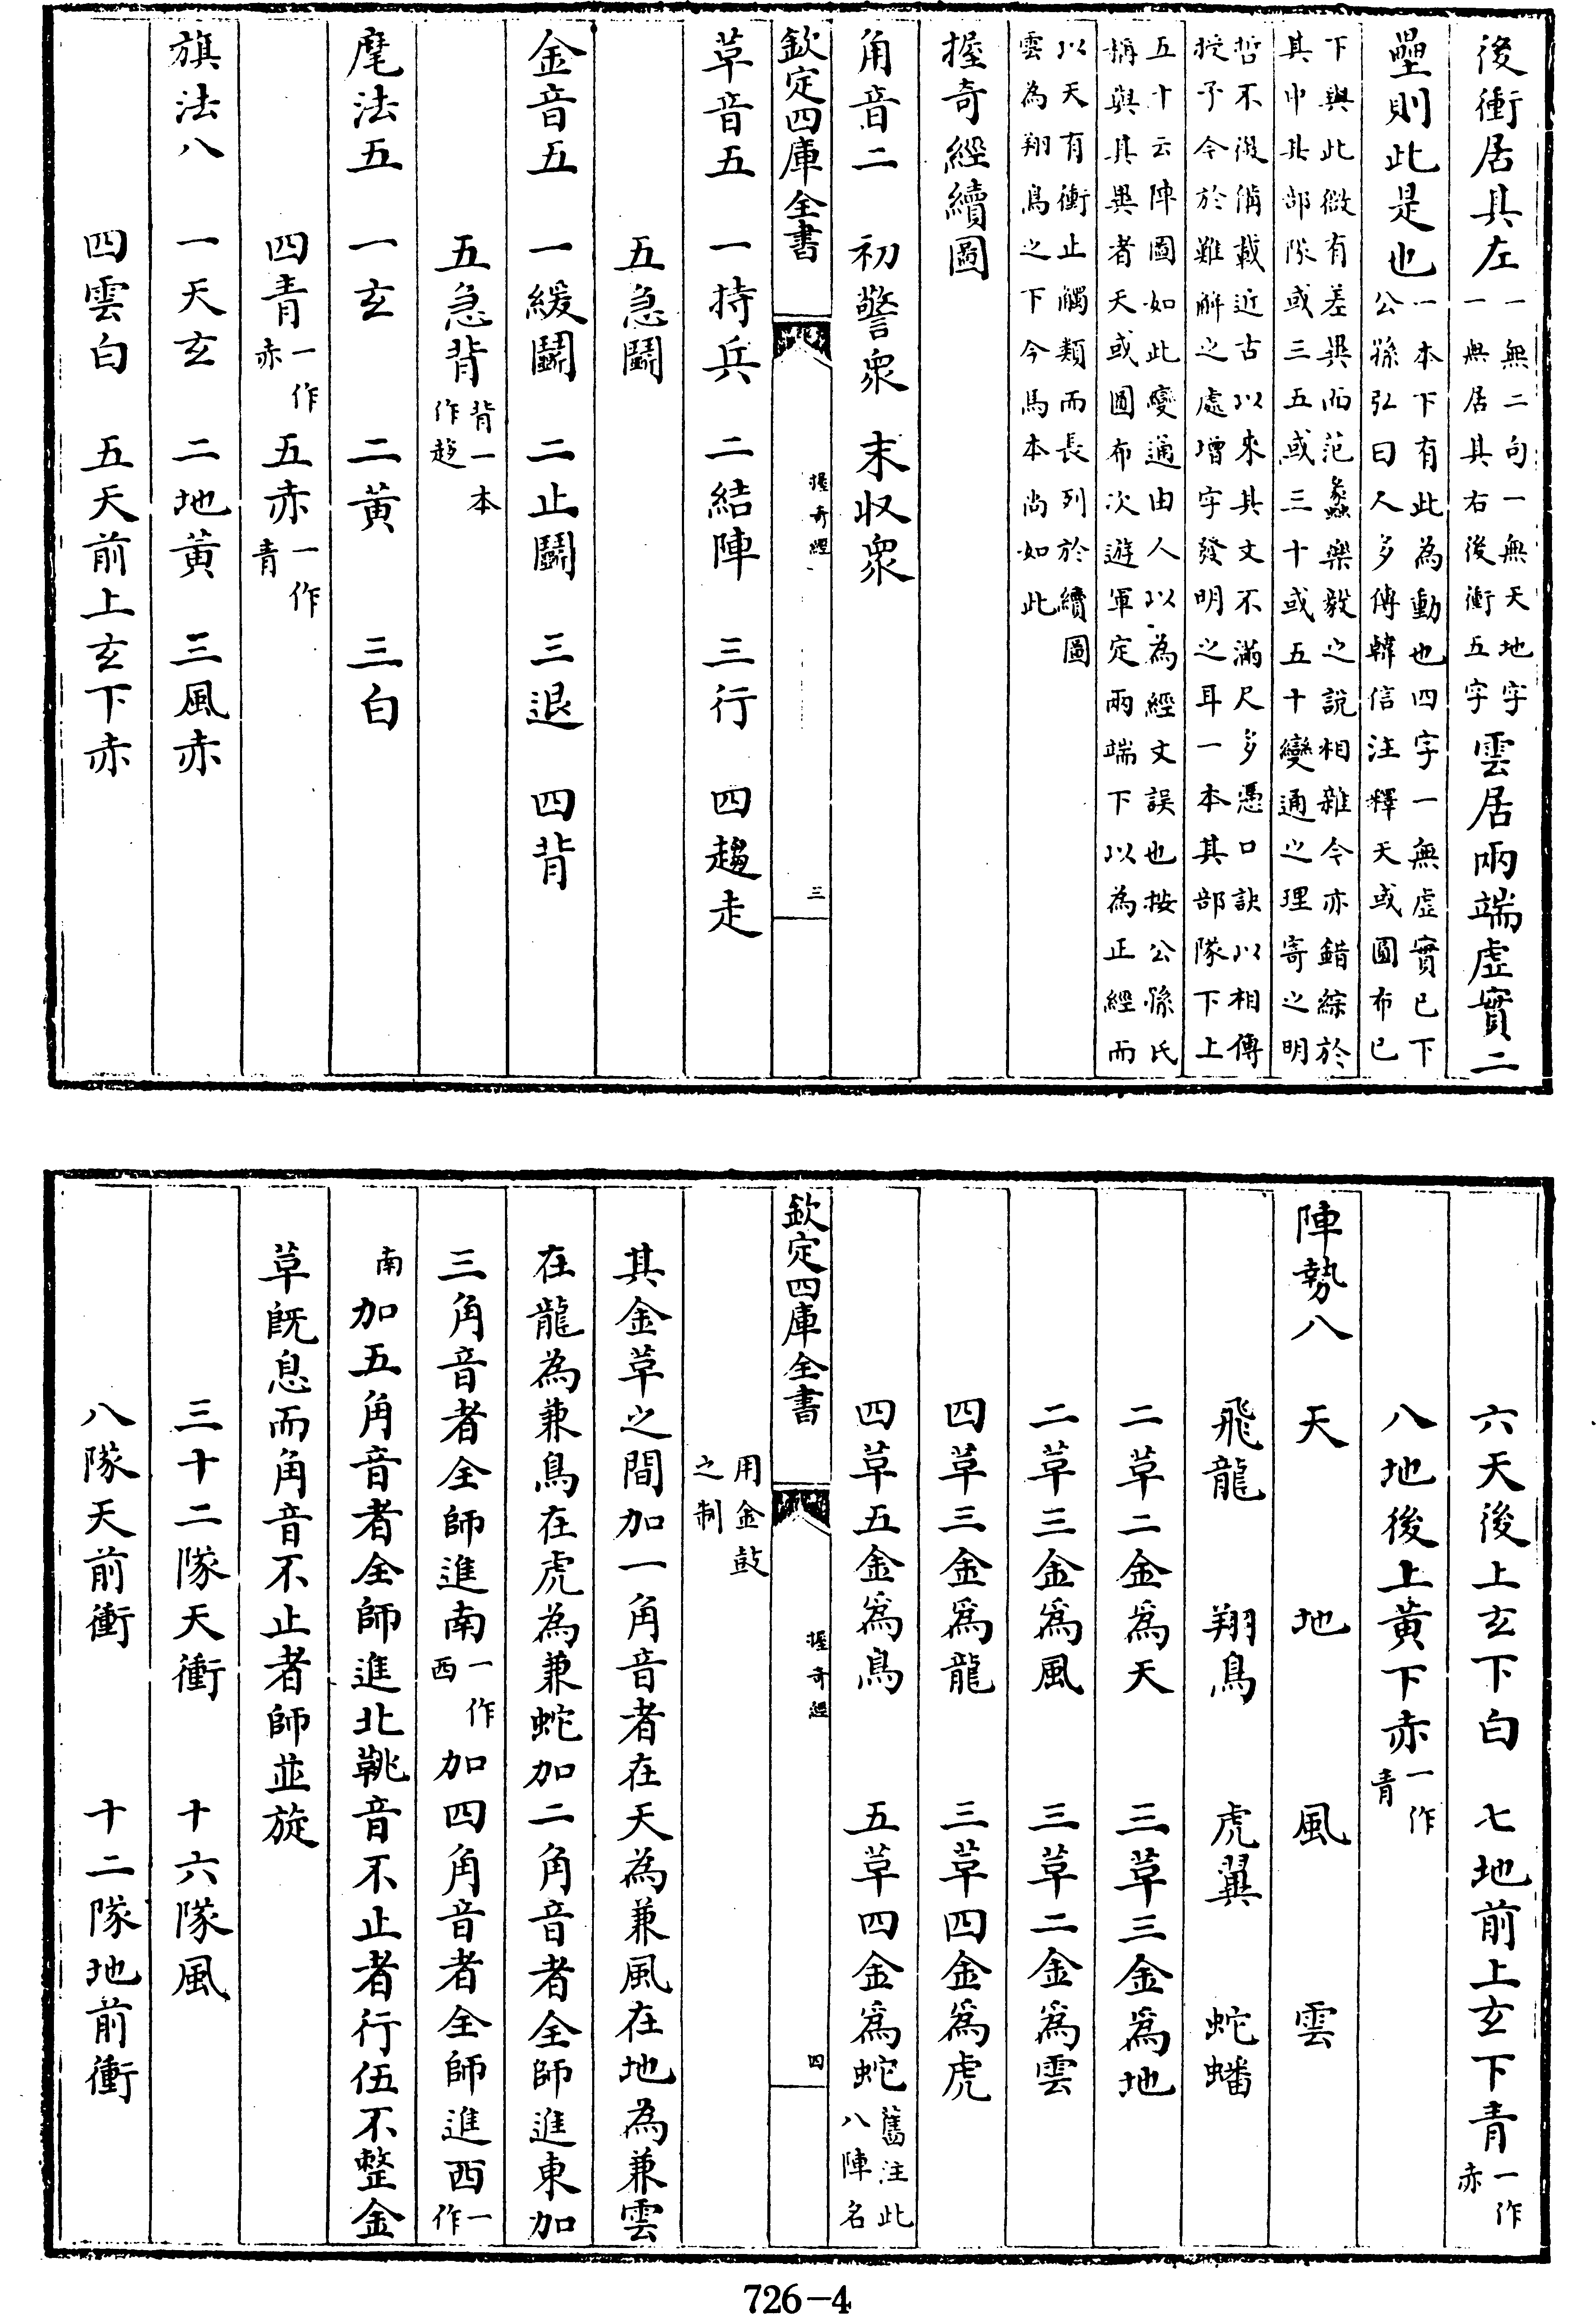 後衝居其左一無二句一無天地字一無居其右後衝五字雲居兩端虛實二
壘則此是也一本下有此為動也四字一無虛實已下公孫弘曰人多傳韓信注釋天或圓布已
下與此微有差異而范蠡樂毅之說相雜今亦錯綜於其中其部隊或三五或三十或五十變通之理寄之明
哲不復備載近古以來其文不滿尺多憑口訣以相傳授予今於難解之處增字發明之耳一本其部隊下上
五十云陣圖如此變通由人以為經文誤也按公孫氏稱與其異者天或圓布次遊軍定兩端下以為正經而
以天有衝止觸類而長列於續圖雲為翔鳥之下今馬本尚如此
握奇經續圖
角音二 初警衆 末収衆
欽定四庫全書 握奇經 三
革音五 一持兵 二結陣 三行 四趨走
五急鬭
金音五 一緩鬭 二止鬭 三退 四背
五急背背一本作趍
麾法五 一玄 二黃 三白
四青一作赤 五赤一作青
旗法八 一天玄 二地黃 三風赤
四雲白 五天前上玄下赤
六天後上玄下白 七地前上玄下青一作赤
八地後上黃下赤一作青
陣勢八 天 地 風 雲
飛龍 翔鳥 虎翼 蛇蟠
二革二金為天 三革三金為地
二革三金為風 三革二金為雲
四革三金為龍 三革四金為虎
四革五金為鳥 五革四金為蛇舊注此八陣名
欽定四庫全書 握奇經 四
用金鼓之制
其金革之間加一角音者在天為兼風在地為兼雲
在龍為兼鳥在虎為兼蛇加二角音者全師進東加
三角音者全師進南一作西加四角音者全師進西一作
南加五角音者全師進北鞉音不止者行伍不整金
革既息而角音不止者師並旋
三十二隊天衝 十六隊風
八隊天前衝 十二隊地前衝
726-4